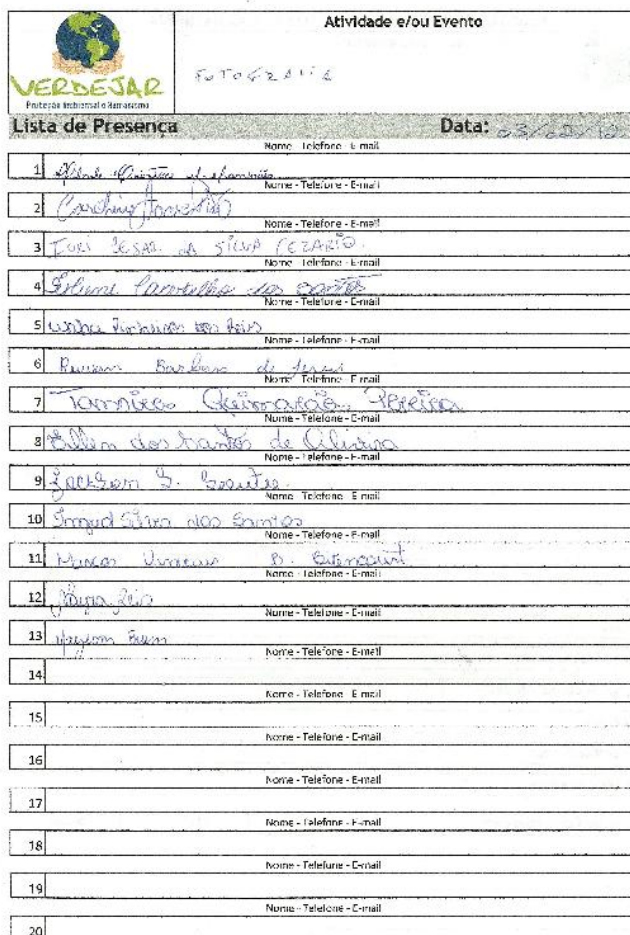 Atividade e/ou Evento
VERDEJAR
Proteção Ambiental e Humanismo
FOTOGRAFIA
Lista de Presença Data: 03/02/12
Nome - Telefone - E-mail
1
Nome - Telefone - E-mail
2
Nome - Telefone - E-mail
3 IURI CESAR DA SILVA CEZARIO.
Nome - Telefone - E-mail
4 dos Santos
Nome - Telefone - E-mail
5 dos Reis
Nome - Telefone - E-mail
6 Barbosa de Jesus
Nome - Telefone - E-mail
7 Guimarães Pereira
Nome - Telefone - E-mail
8 Ellen dos Santos de Oliveira
Nome - Telefone - E-mail
9 Jackson S.
Nome - Telefone - E-mail
10 Ingrid Silva dos Santos
Nome - Telefone - E-mail
11 Marcos Vinicius B. Bitencourt
Nome - Telefone - E-mail
12 Reis
Nome - Telefone - E-mail
13
Nome - Telefone - E-mail
14
Nome - Telefone - E-mail
15
Nome - Telefone - E-mail
16
Nome - Telefone - E-mail
17
Nome - Telefone - E-mail
18
Nome - Telefone - E-mail
19
Nome - Telefone - E-mail
20